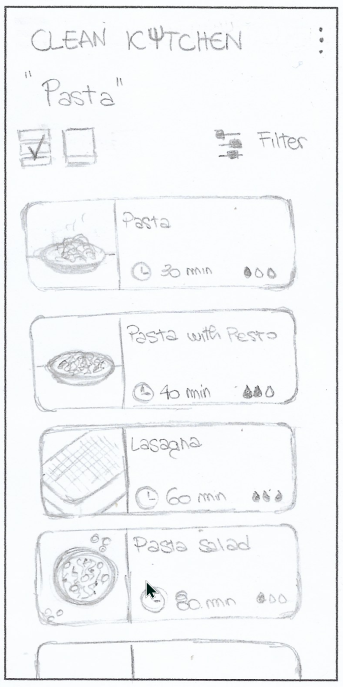 CLEAN KITCHEN
"Pasta"
Filter
Pasta
30 min
Pasta with Pesto
40 min
Lasagna
60 min
Pasta salad
min